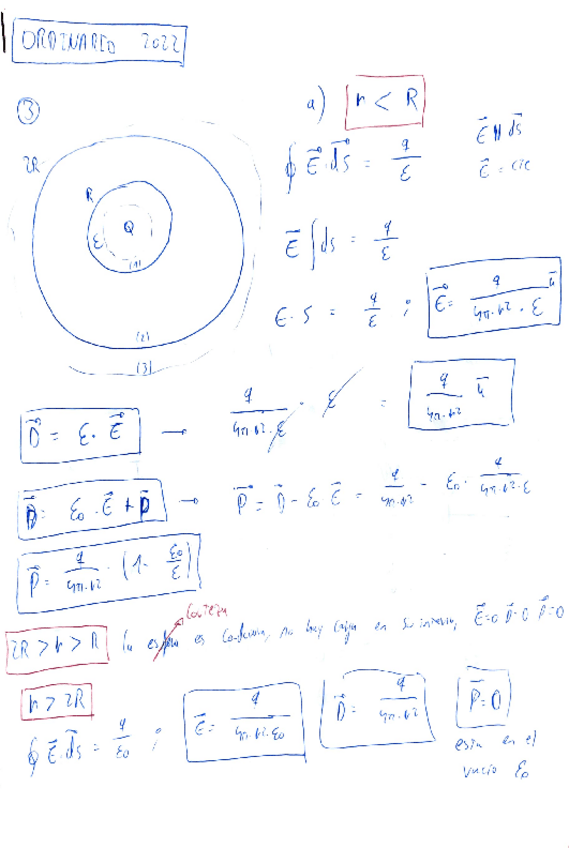 ORDINARIO 2022
3
a) r < R
2R
R
Q
ε
(1)
(2)
(3)
∮ E⃗·ds⃗ = q/ε
E⃗ ∥ ds⃗
E⃗ = cte
E⃗ ∫ ds = q/ε
E · S = q/ε ; E⃗ = q/(4π·r²·ε) u⃗
D⃗ = ε · E⃗ → q/(4π·r²·ε) · ε = q/(4π·r²) u⃗
D⃗ = ε₀ · E⃗ + P⃗ → P⃗ = D⃗ - ε₀ E⃗ = q/(4π·r²) - ε₀ · q/(4π·r²·ε)
P⃗ = q/(4π·r²) · (1 - ε₀/ε)
Corteza
2R > r > R La es conductora, no hay carga en su interior, E⃗=0 D⃗=0 P⃗=0
r > 2R
∮ E⃗·ds⃗ = q/ε₀ ; E⃗ = q/(4π·r²·ε₀) D⃗ = q/(4π·r²) P⃗ = 0
esta en el
vacio ε₀